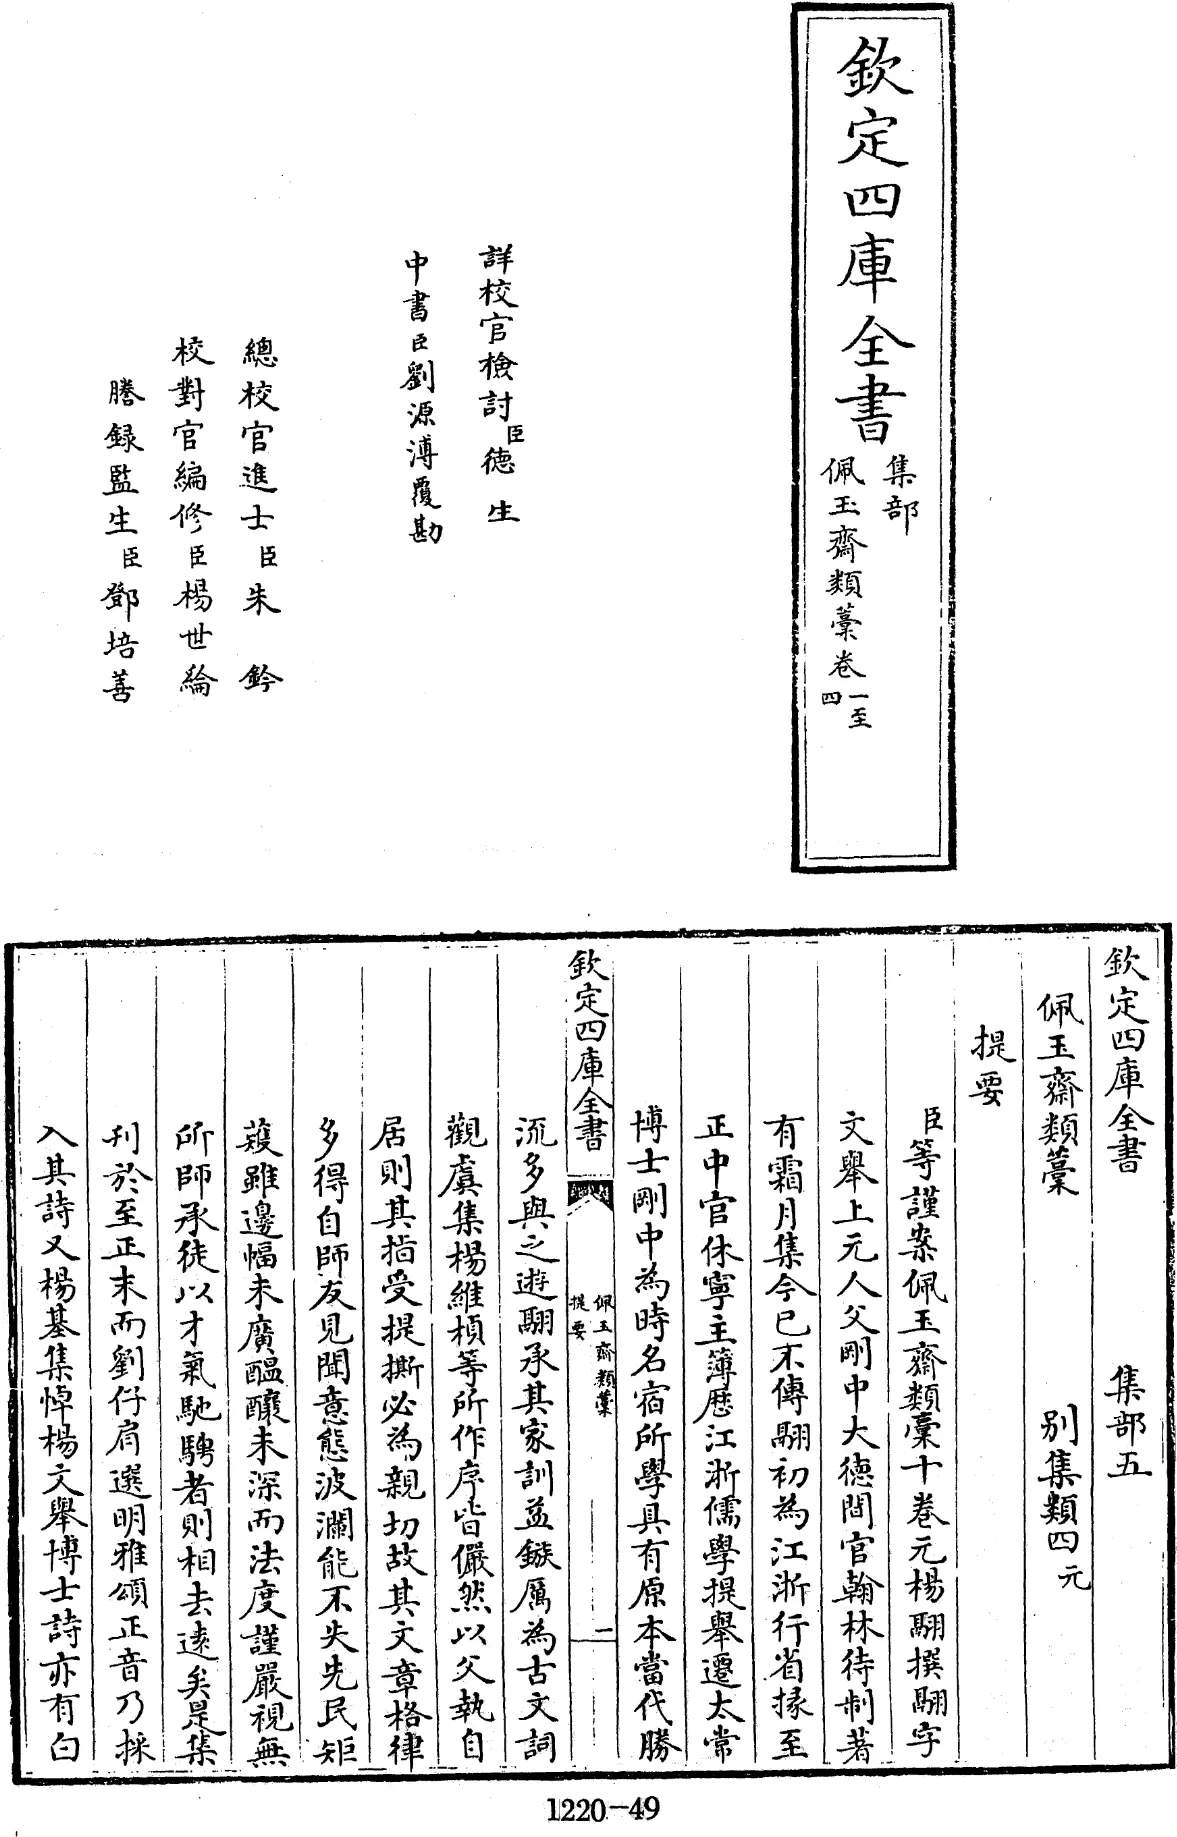 欽定四庫全書
集部
佩玉齋類藁卷一至四
詳校官檢討臣德生
中書臣劉源溥覆勘
總校官進士臣朱鈐
校對官編修臣楊世綸
謄録監生臣鄧培善
欽定四庫全書 集部五
佩玉齋類藁 别集類四元
提要
臣等謹案佩玉齋類藁十卷元楊翮撰翮字
文舉上元人父剛中大徳間官翰林待制著
有霜月集今已不傳翮初為江浙行省掾至
正中官休寧主簿歴江浙儒學提舉遷太常
博士剛中為時名宿所學具有原本當代勝
欽定四庫全書 佩玉齋類藁 提要 一
流多與之遊翮承其家訓益鏃厲為古文詞
觀虞集楊維楨等所作序皆儼然以父執自
居則其指受提撕必為親切故其文章格律
多得自師友見聞意態波瀾能不失先民矩
蒦雖邊幅未廣醞釀未深而法度謹嚴視無
所師承徒以才氣馳騁者則相去逺矣是集
刋於至正末而劉仔肩選明雅頌正音乃採
入其詩又楊基集悼楊文舉博士詩亦有白
1220-49